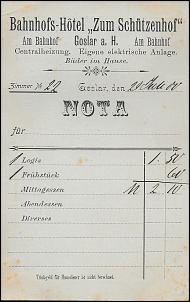 Bahnhofs-Hôtel „Zum Schützenhof"
Am Bahnhof Goslar a. H. Am Bahnhof
Centralheizung. Eigene elektrische Anlage.
Bäder im Hause.
Zimmer № 22 Goslar, den
NOTA
für
1 Logis 1 50
1 Frühstück 60
Mittagessen M 2 10
Abendessen
Diverses
Trinkgeld für Hausdiener ist nicht berechnet.